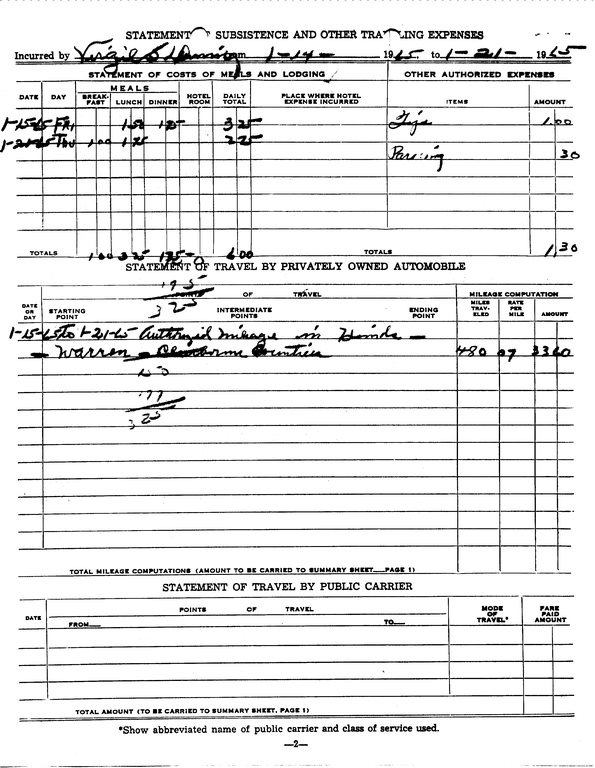 STATEMENT OF SUBSISTENCE AND OTHER TRAVELING EXPENSES
Incurred by Virgil 1-14- 1965 to 1-21- 1965
STATEMENT OF COSTS OF MEALS AND LODGING OTHER AUTHORIZED EXPENSES
DATE DAY MEALS BREAK-FAST LUNCH DINNER HOTEL ROOM DAILY TOTAL PLACE WHERE HOTEL EXPENSE INCURRED ITEMS AMOUNT
1-15-65 Fri 1.50 1.75 3 25 Tips 1.00
1-21-65 Thu 1 00 1.25 2 25
Parking 30
TOTALS 1 00 3 25 1 75 6 00 TOTALS 1,30
STATEMENT OF TRAVEL BY PRIVATELY OWNED AUTOMOBILE
DATE OR DAY POINTS OF TRAVEL STARTING POINT INTERMEDIATE POINTS ENDING POINT MILEAGE COMPUTATION MILES TRAV-ELED RATE PER MILE AMOUNT
3 25
1-15-65 to 1-21-65 Authorized mileage in Hinds -
- Warren - Claiborne Counties 480 07 33 60
3 25
TOTAL MILEAGE COMPUTATIONS (AMOUNT TO BE CARRIED TO SUMMARY SHEET PAGE 1)
STATEMENT OF TRAVEL BY PUBLIC CARRIER
DATE POINTS OF TRAVEL FROM TO MODE OF TRAVEL* FARE PAID AMOUNT
TOTAL AMOUNT (TO BE CARRIED TO SUMMARY SHEET, PAGE 1)
*Show abbreviated name of public carrier and class of service used.
—2—